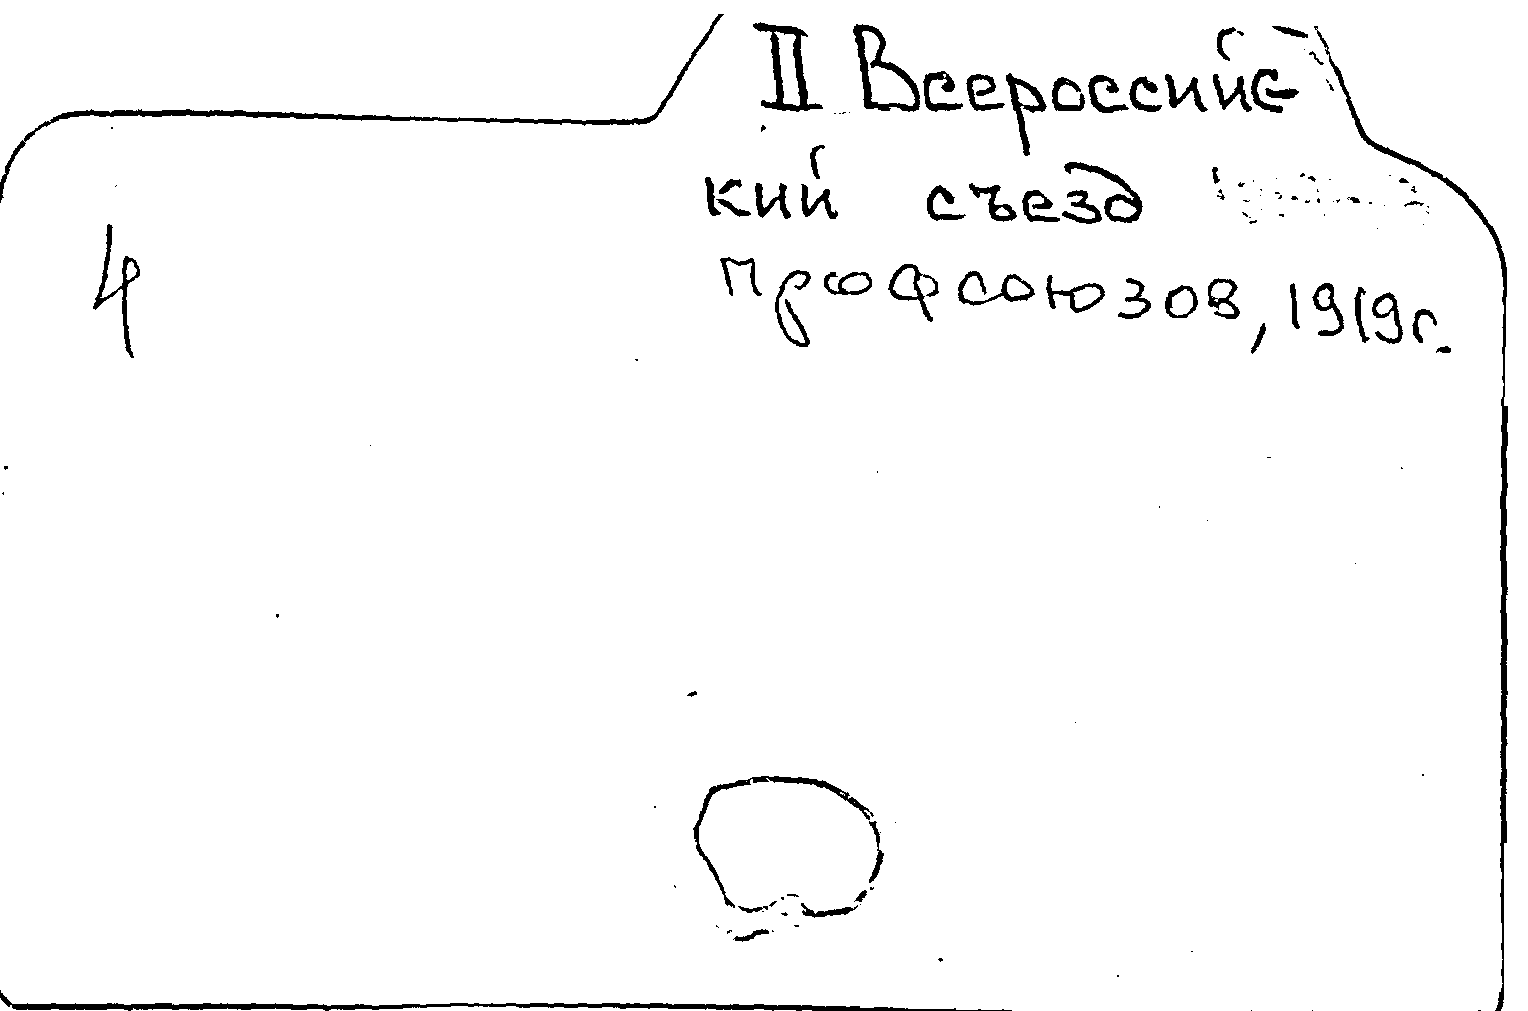 II Всероссийс
кий съезд
профсоюзов, 1919 г.
4